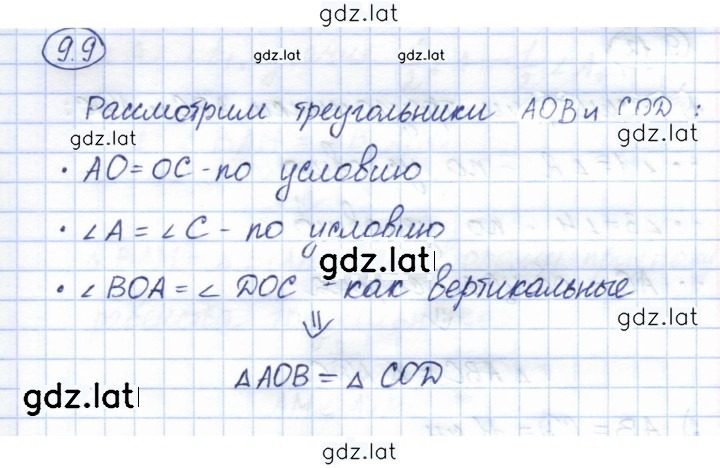 gdz.lat
9.9
gdz.lat gdz.lat
Рассмотрим треугольники AOB и COD :
gdz.lat gdz.lat
· AO = OC - по условию
· ∠A = ∠C - по условию
gdz.lat
· ∠BOA = ∠DOC - как вертикальные
gdz.lat
⇓
△AOB = △COD
gdz.lat
gdz.lat